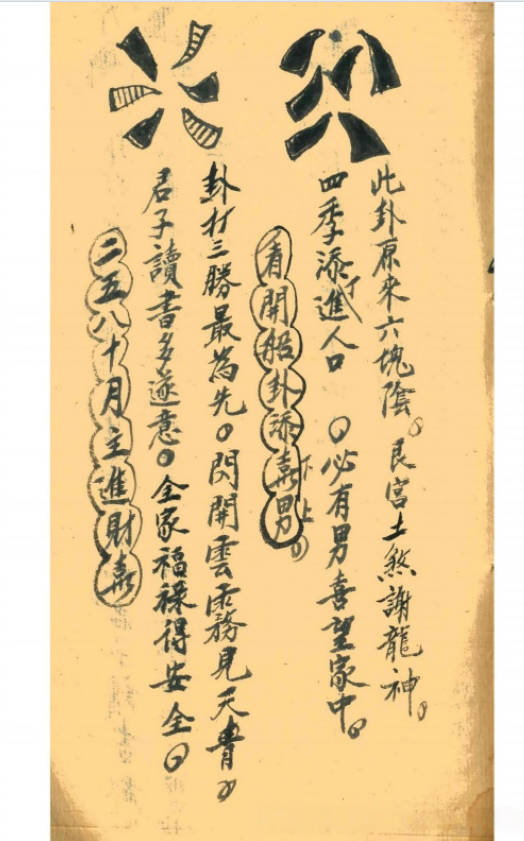 此卦原來六塊陰。艮宮土煞謝龍神。
四季添丁進人口。必有男喜望家中。
青開船卦添嘉男 下上
卦打三勝最為先。閃開雲霧見天書。
君子讀書多遂意。全家福祿得安全。
二五八十月主進財嘉